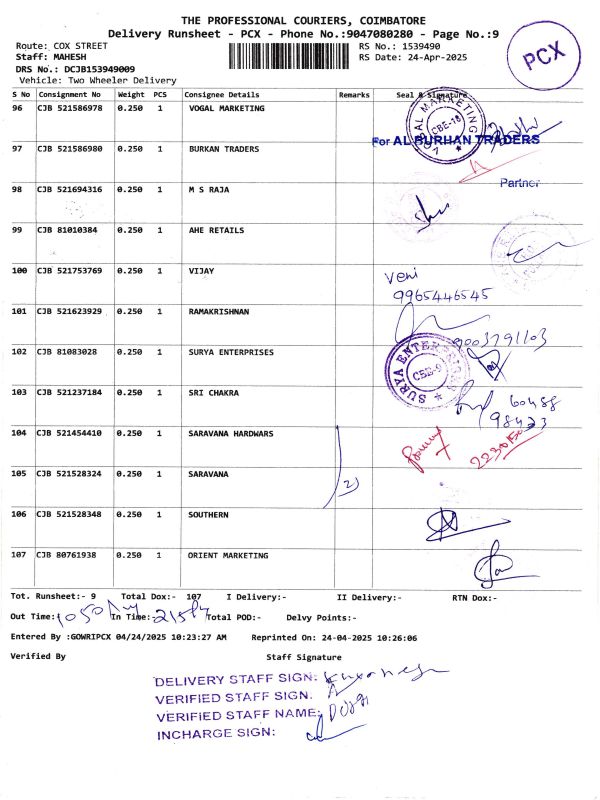 THE PROFESSIONAL COURIERS, COIMBATORE
Delivery Runsheet - PCX - Phone No.:9047080280 - Page No.:9
Route: COX STREET
RS No.: 1539490
PCX
Staff: MAHESH
RS Date: 24-Apr-2025
DRS No.: DCJB153949009
Vehicle: Two Wheeler Delivery
S No Consignment No Weight PCS Consignee Details Remarks Seal & Signature
96 CJB 521586978 0.250 1 VOGAL MARKETING
CBE-18
For AL BURHAN TRADERS
97 CJB 521586980 0.250 1 BURKAN TRADERS
Partner
98 CJB 521694316 0.250 1 M S RAJA
99 CJB 81010384 0.250 1 AHE RETAILS
100 CJB 521753769 0.250 1 VIJAY
Veni
9965446545
101 CJB 521623929 0.250 1 RAMAKRISHNAN
9003791103
102 CJB 81083028 0.250 1 SURYA ENTERPRISES
SURYA ENTERPRISES CBE-9
103 CJB 521237184 0.250 1 SRI CHAKRA
60488
98423
104 CJB 521454410 0.250 1 SARAVANA HARDWARS
105 CJB 521528324 0.250 1 SARAVANA
2)
106 CJB 521528348 0.250 1 SOUTHERN
107 CJB 80761938 0.250 1 ORIENT MARKETING
Tot. Runsheet:- 9 Total Dox:- 107 I Delivery:- II Delivery:- RTN Dox:-
Out Time: In Time: Total POD:- Delvy Points:-
Entered By :GOWRIPCX 04/24/2025 10:23:27 AM Reprinted On: 24-04-2025 10:26:06
Verified By Staff Signature
DELIVERY STAFF SIGN:
VERIFIED STAFF SIGN.
VERIFIED STAFF NAME:
INCHARGE SIGN: